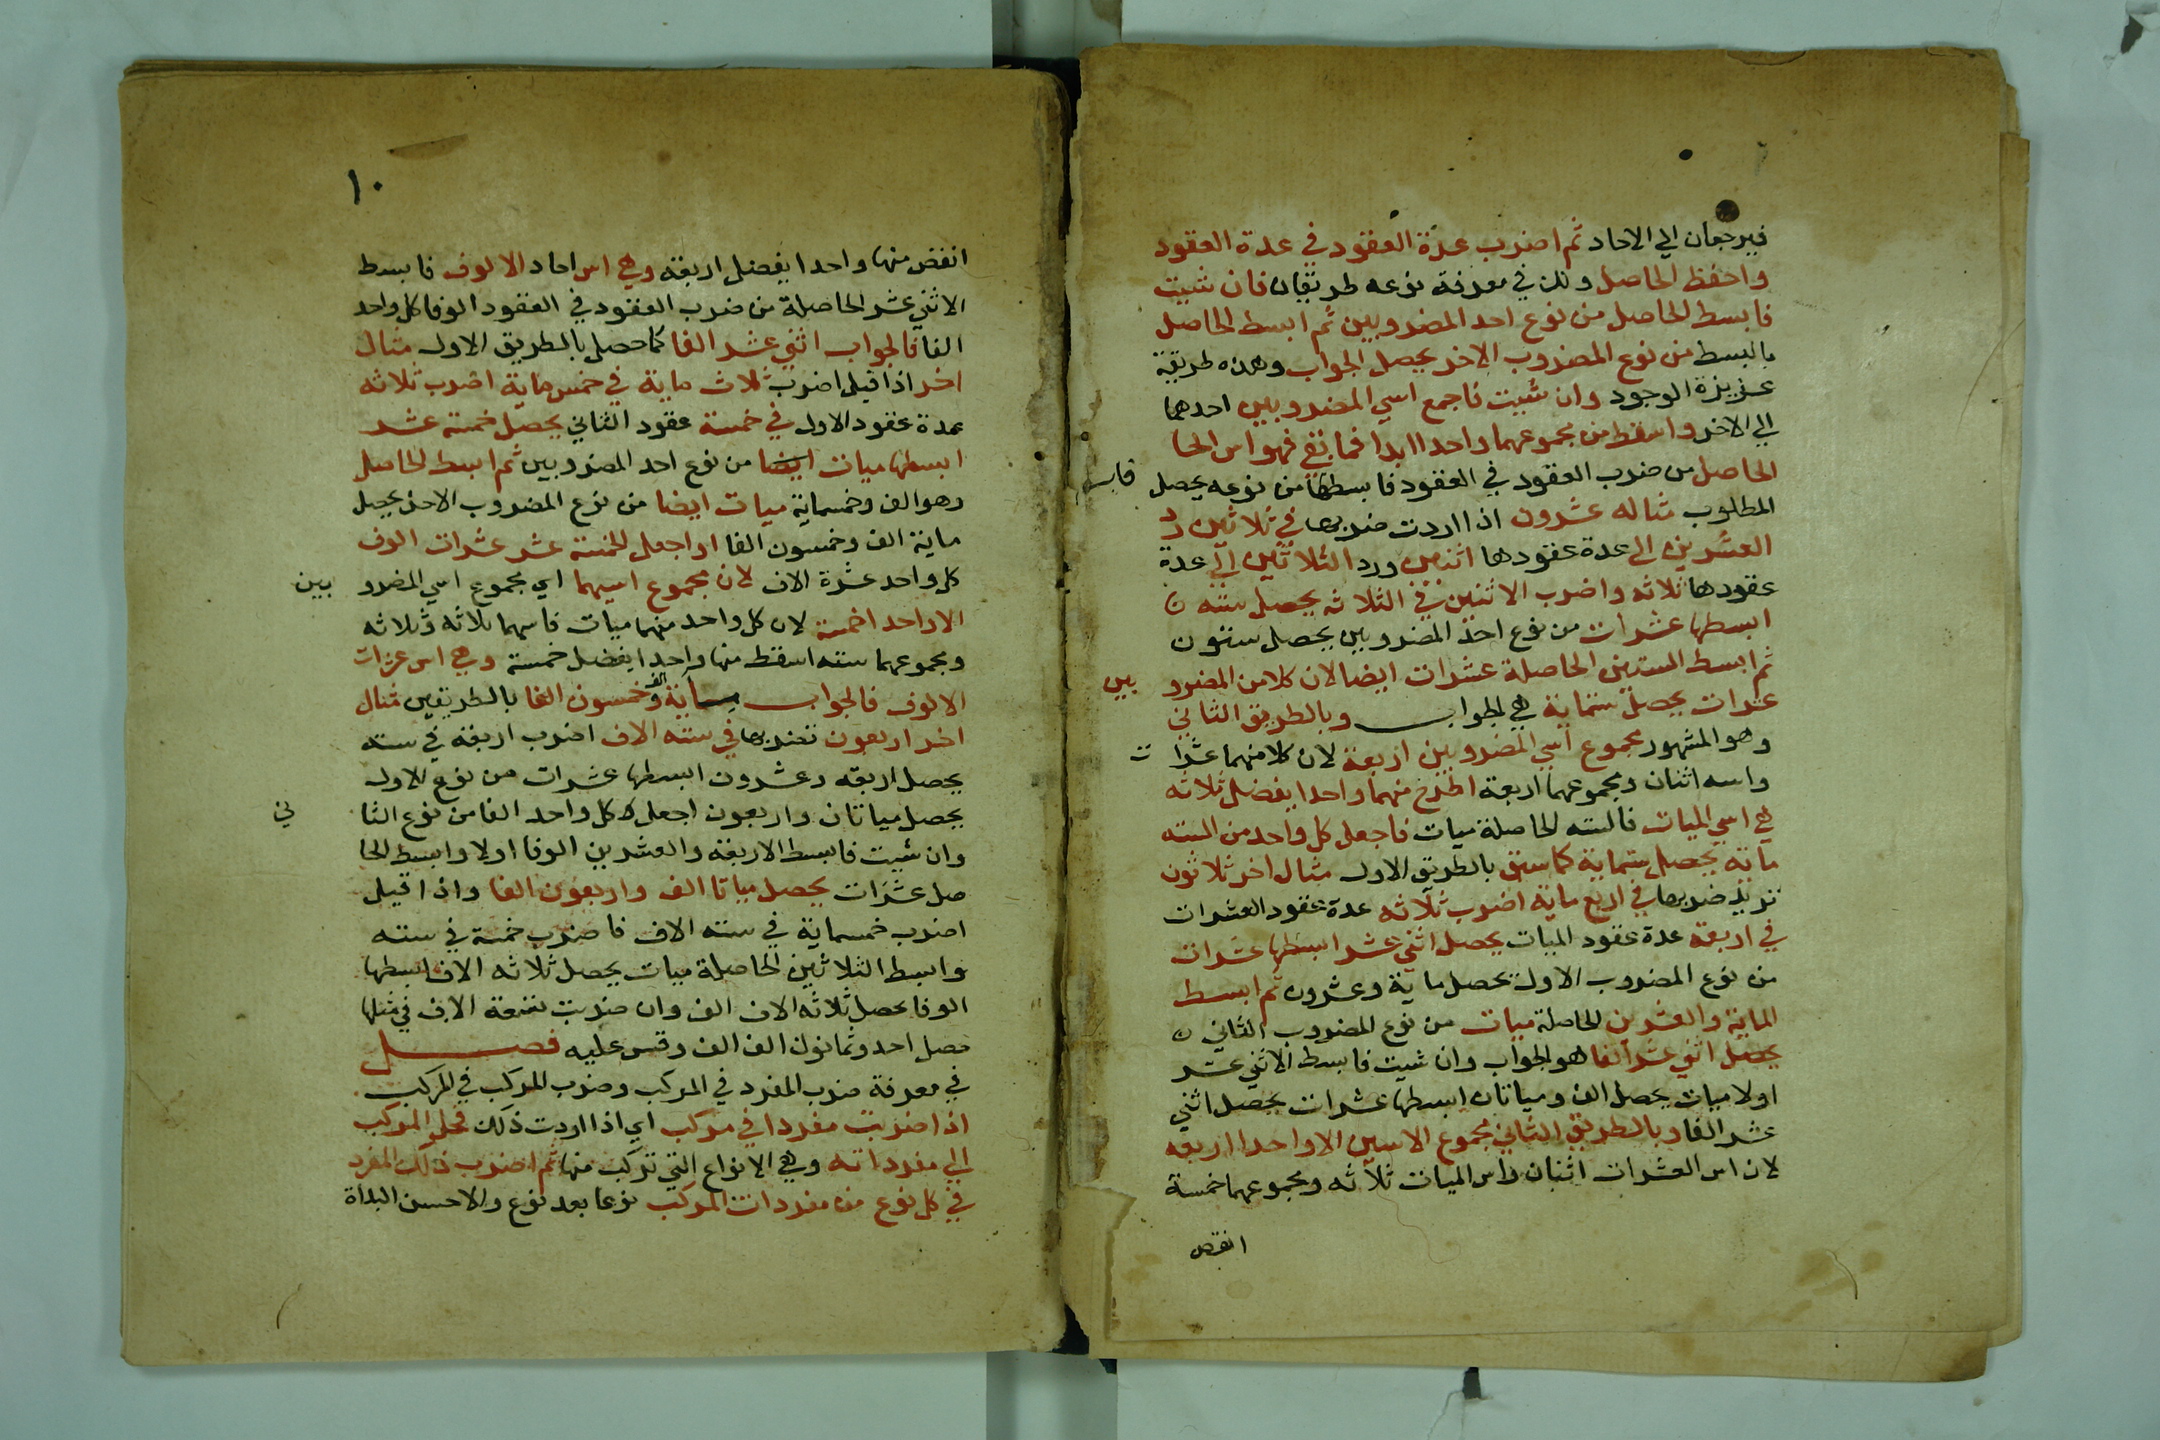 فيرجعان الي الاحاد ثم اضرب عدة العقود في عدة العقود
واحفظ الحاصل ولك في معرفة نوعه طريقان فان شيت
فابسط الحاصل من نوع احد المضروبين ثم ابسط الحاصل
بالبسط من نوع المضروب الاخر يحصل الجواب وهذه طريقة
عزيزة الوجود وان شيت فاجمع اسي المضروبين احدهما
الي الاخر واسقط من مجموعهما واحدا ابدا فما بقي فهو اس الحا
الحاصل من ضرب العقود في العقود فابسطها من نوعه يحصل
المطلوب مثاله عشرون اذا اردت ضربها في ثلاثين رد
العشرين الى عدة عقودها اثنين ورد الثلاثين الي عدة
عقودها ثلاثه واضرب الاثنين في الثلاثه يحصل سته
ابسطها عشرات من نوع احد المضروبين يحصل ستون
ثم ابسط الستين الحاصلة عشرات ايضا لان كلا من المضرو بين
عشرات يحصل ستماية هي الجواب وبالطريق الثاني
وهو المشهور مجموع اسي المضروبين اربعة لان كلا منهما عشرا ت
واسه اثنان ومجموعهما اربعة اطرح منهما واحدا يفضل ثلاثه
هي اسي الميات فالسته الحاصلة ميات فاجعل كل واحد من السته
ماية يحصل ستماية كما سبق بالطريق الاول مثال اخر ثلاثون
تريد ضربها في اربع ماية اضرب ثلاثه عدة عقود العشرات
في اربعة عدة عقود الميات يحصل اثني عشر ابسطها عشرات
من نوع المضروب الاول يحصل ماية وعشرون ثم ابسط
الماية والعشرين الحاصلة ميات من نوع المضروب الثاني
يحصل اثني عشر الفا هو الجواب وان شيت فابسط الاثني عشر
اولا ميات يحصل الف ومياتان ابسطها عشرات يحصل اثني
عشر الفا وبالطريق الثاني مجموع الاسين الا واحدا اربعه
لان اس العشرات اثنان واس الميات ثلاثه ومجموعهما خمسة
انقص
١٠
انقص منها واحدا يفضل اربعة وهي اس احاد الالوف فابسط
الاثني عشر الحاصلة من ضرب العقود في العقود الوفا كل واحد
الفا فالجواب اثني عشر الفا كما حصل بالطريق الاول مثال
اخر اذا قيل اضرب ثلاث ماية في خمس ماية اضرب ثلاثه
عدة عقود الاول في خمسة عقود الثاني يحصل خمسة عشر
ابسطها ميات ايضا من نوع احد المضروبين ثم ابسط الحاصل
وهو الف وخمسماية ميات ايضا من نوع المضروب الاخر يحصل
ماية الف وخمسون الفا او اجعل الخمسة عشر عشرات الوف
كل واحد عشرة الاف لان مجموع اسيهما اي مجموع اسي المضرو بين
الا واحدا خمسة لان كل واحد منهما ميات فاسهما ثلاثه وثلاثه
ومجموعهما سته اسقط منها واحدا يفضل خمسة وهي اس عشرات
الالوف فالجواب ماية الف وخمسون الفا بالطريقين مثال
اخر اربعون تضربها في سته الاف اضرب اربعة في سته
يحصل اربعه وعشرون ابسطها عشرات من نوع الاول
يحصل مياتان واربعون اجعل كل واحد الفا من نوع الثا ني
وان شيت فابسط الاربعة والعشرين الوفا اولا وابسط الحا
صل عشرات يحصل مياتا الف واربعون الفا واذا قيل
اضرب خمسماية في سته الاف فاضرب خمسة في سته
وابسط الثلاثين الحاصلة ميات يحصل ثلاثه الاف ابسطها
الوفا يحصل ثلاثه الاف الف وان ضربت تسعة الاف في مثلها
حصل احد وثمانون الف الف وقس عليه فصل
في معرفة ضرب المفرد في المركب وضرب المركب في المركب
اذا ضربت مفردا في مركب اي اذا اردت ذلك فحل المركب
الي مفرداته وهي الانواع التي تركب منها ثم اضرب ذلك المفرد
في كل نوع من مفردات المركب نوعا بعد نوع والاحسن البداة